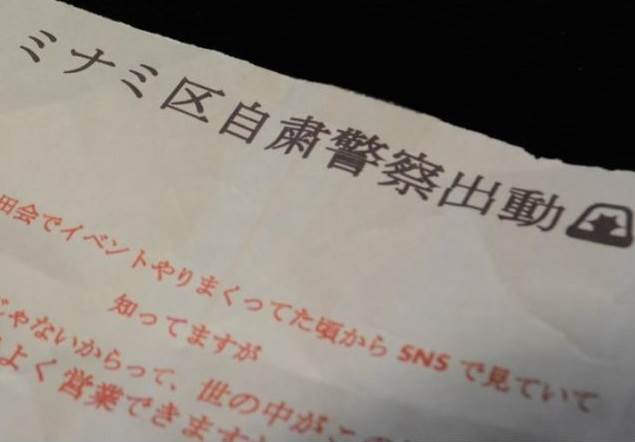 ミナミ区自粛警察出動
田会でイベントやりまくってた頃から SNS で見ていて
知ってますが
じゃないからって、世の中がこの
よく営業できます